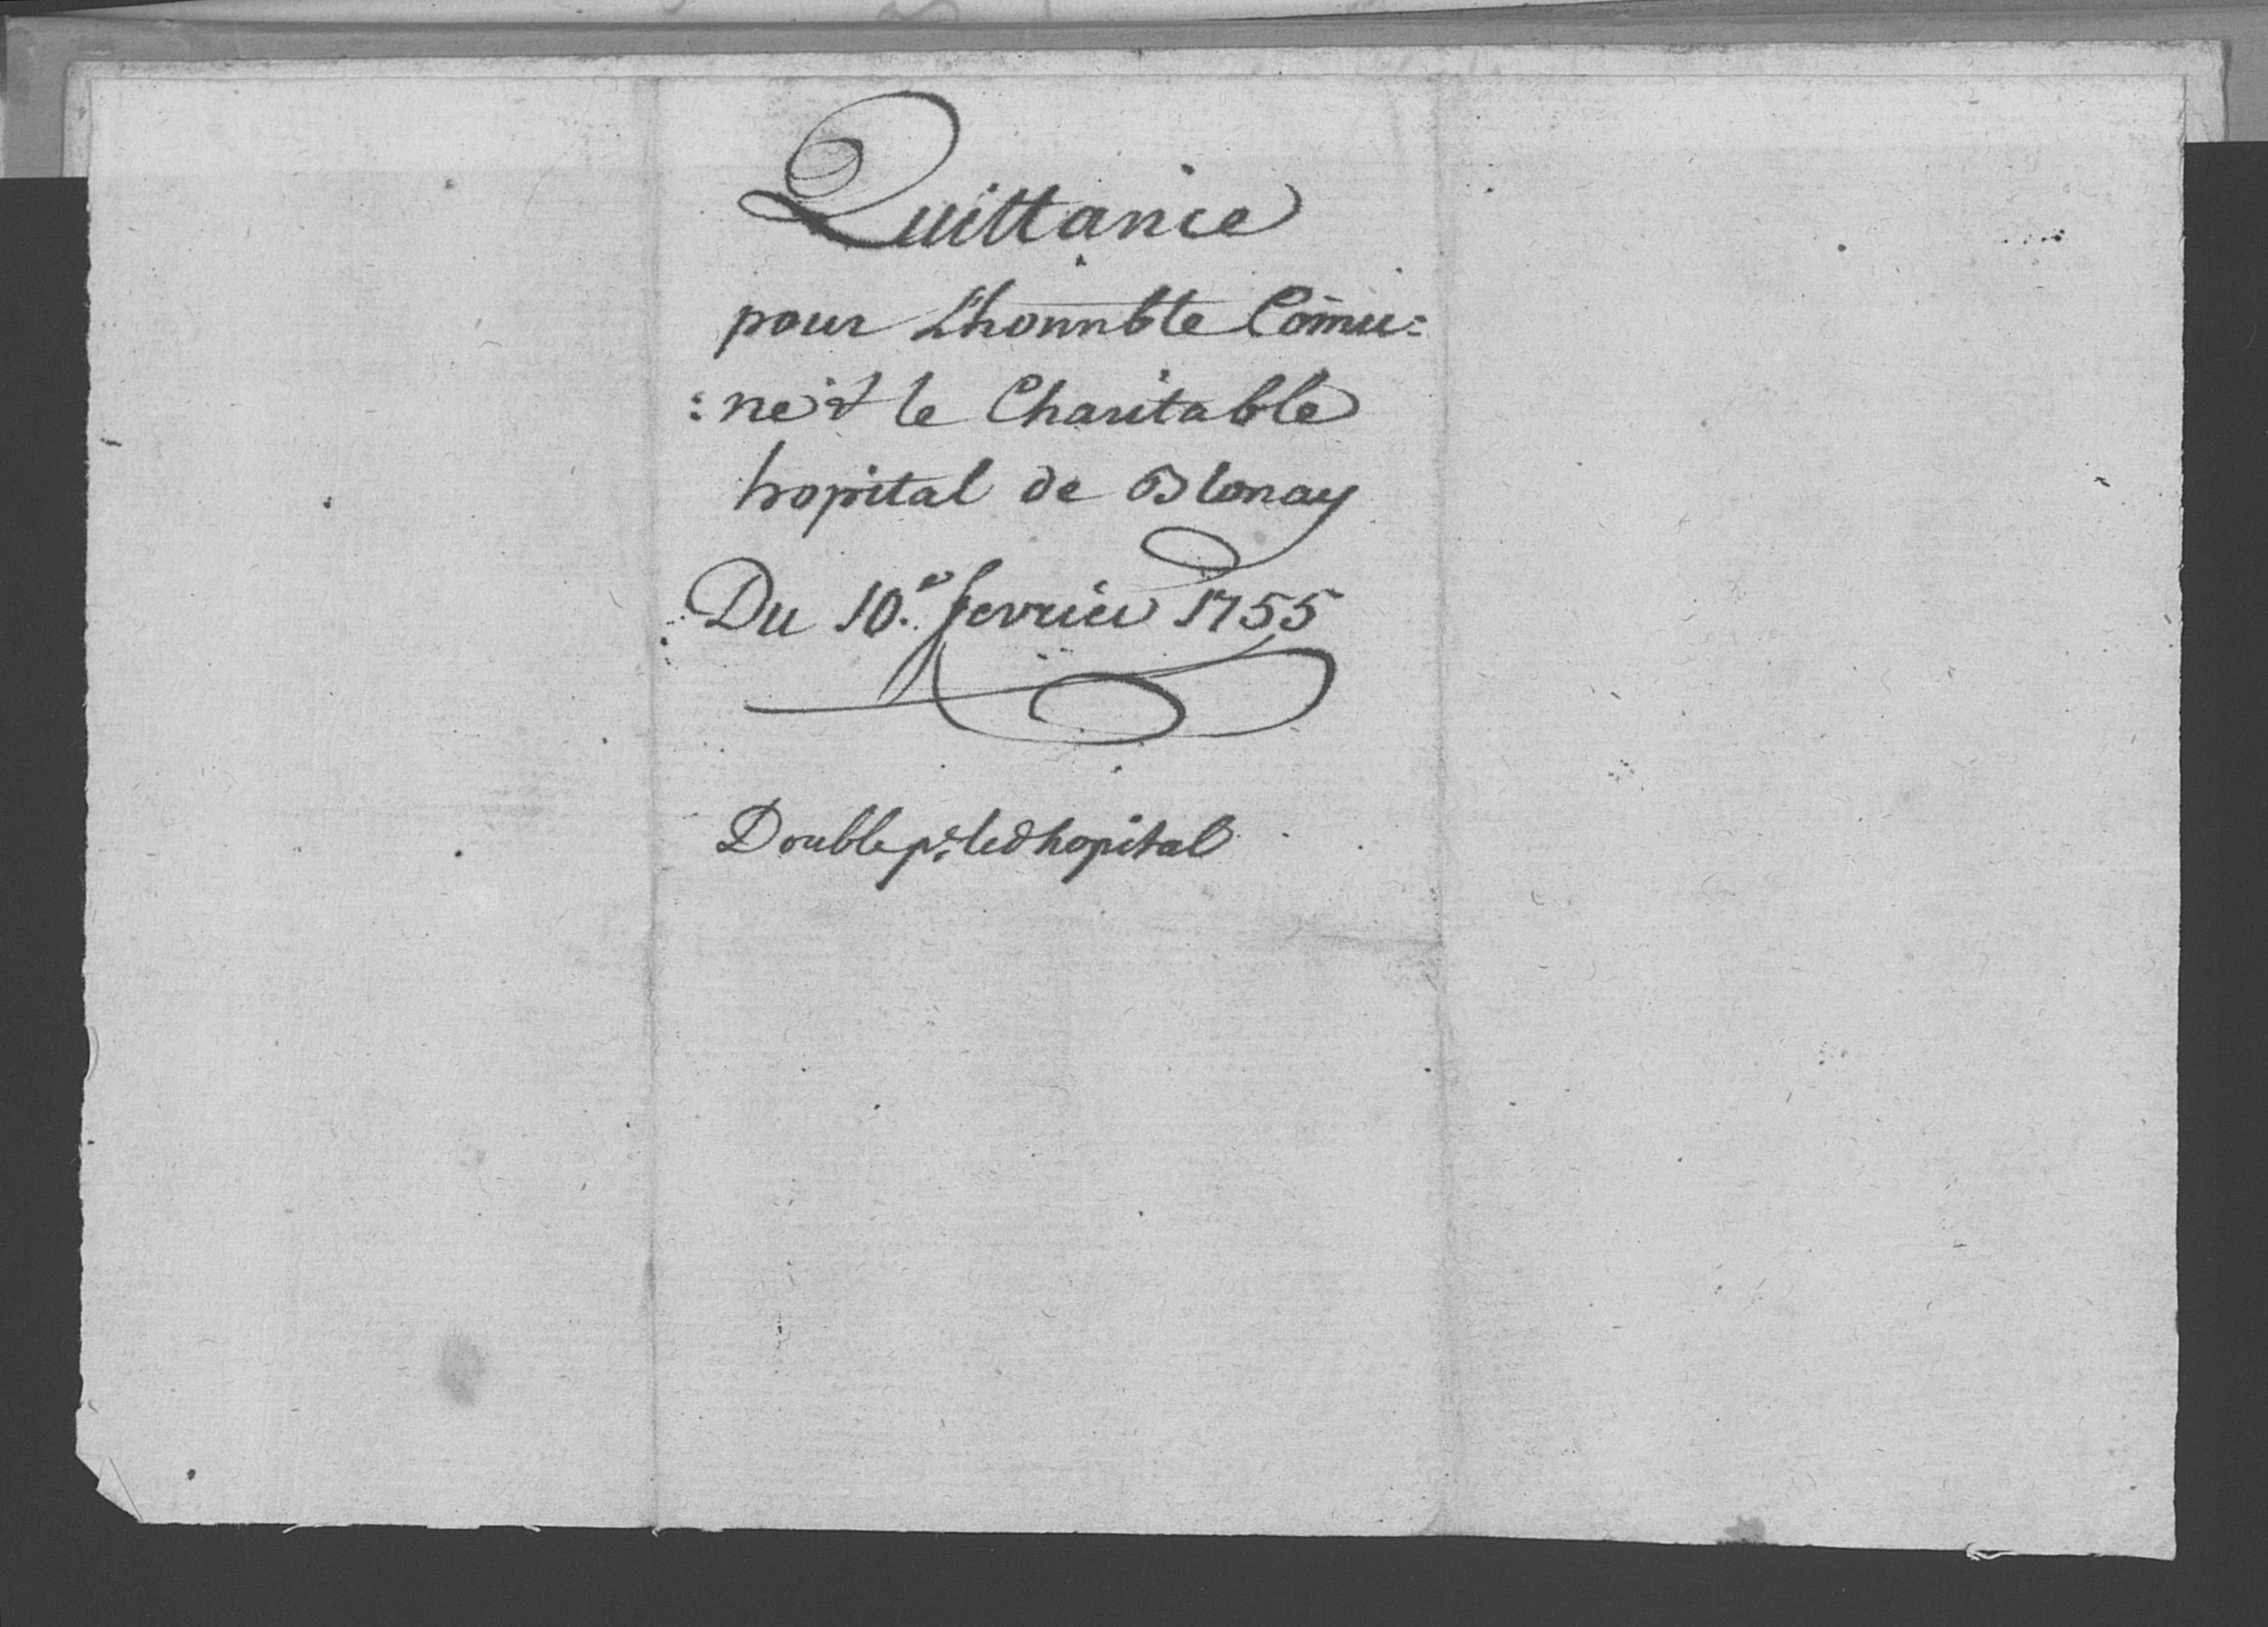 Quittance
pour Lhonnble Com̃u=
=ne & le Charitable
hopital de Blonay
Du 10.e fevrier 1755
Double pr. led hopital